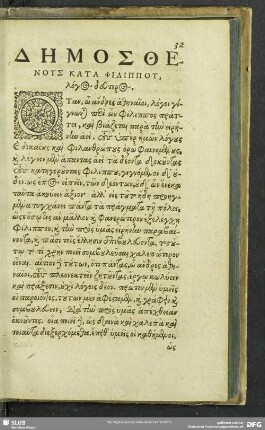 32
ΔΗΜΟΣΘΕ
ΝΟΥΣ ΚΑΤΑ ΦΙΛΙΠΠΟΥ,
λόγος δεύτερος.
Ὅταν, ὦ ἄνδρες ἀθηναῖοι, λόγοι γί-
γνωνται περὶ ὧν Φίλιππος πράττει
τει, καὶ βιάζεται παρὰ τὴν εἰρή-
νην ἀεὶ, τοὺς ὑπὲρ ἡμῶν λόγους
καὶ δικαίους καὶ φιλανθρώπους ὁρῶ φαινομένους,
καὶ λέγειν μὲν ἅπαντας ἀεὶ τὰ δέοντα δοκοῦντας
τοὺς κατηγοροῦντας Φιλίππου, γιγνόμενον δὲ οὐ-
δὲν, ὡς ἔπος εἰπεῖν, τῶν δεόντων, οὐδ' ὧν ἕνεκα
ταῦτα ἀκούειν ἄξιον. ἀλλ' εἰς τοῦτο ἤδη προηγ-
μένα τυγχάνει πάντα τὰ πράγματα τῇ πόλει,
ὥσθ' ὅσῳ τις ἂν μᾶλλον καὶ φανερώτερον ἐξελέγχῃ
Φίλιππον, καὶ τὴν πρὸς ὑμᾶς εἰρήνην παραβαί-
νοντα, καὶ πᾶσι τοῖς ἕλλησιν ἐπιβουλεύοντα, τοσού-
τῳ τὸ τί χρὴ ποιεῖν συμβουλεῦσαι χαλεπώτερον
εἶναι. αἴτιον δὲ τούτων, ὅτι πάντας, ὦ ἄνδρες ἀθη-
ναῖοι, τοὺς πλεονεκτεῖν ζητοῦντας, ἔργῳ κωλύειν
καὶ πράξεσιν, οὐχὶ λόγοις δέον. πρῶτον μὲν ἡμεῖς
οἱ παριόντες, τούτων μὲν ἀφέσταμεν, καὶ γράφειν καὶ
συμβουλεύειν, τὴν πρὸς ὑμᾶς ἀπέχθειαν
ὀκνοῦντες. οἷα ποιεῖ δὲ, ὡς δεινὰ καὶ χαλεπὰ καὶ
τοιαῦτα διεξερχόμεθα. ἔπειθ' ὑμεῖς οἱ καθήμενοι,
ὡς
SLUB
DFG